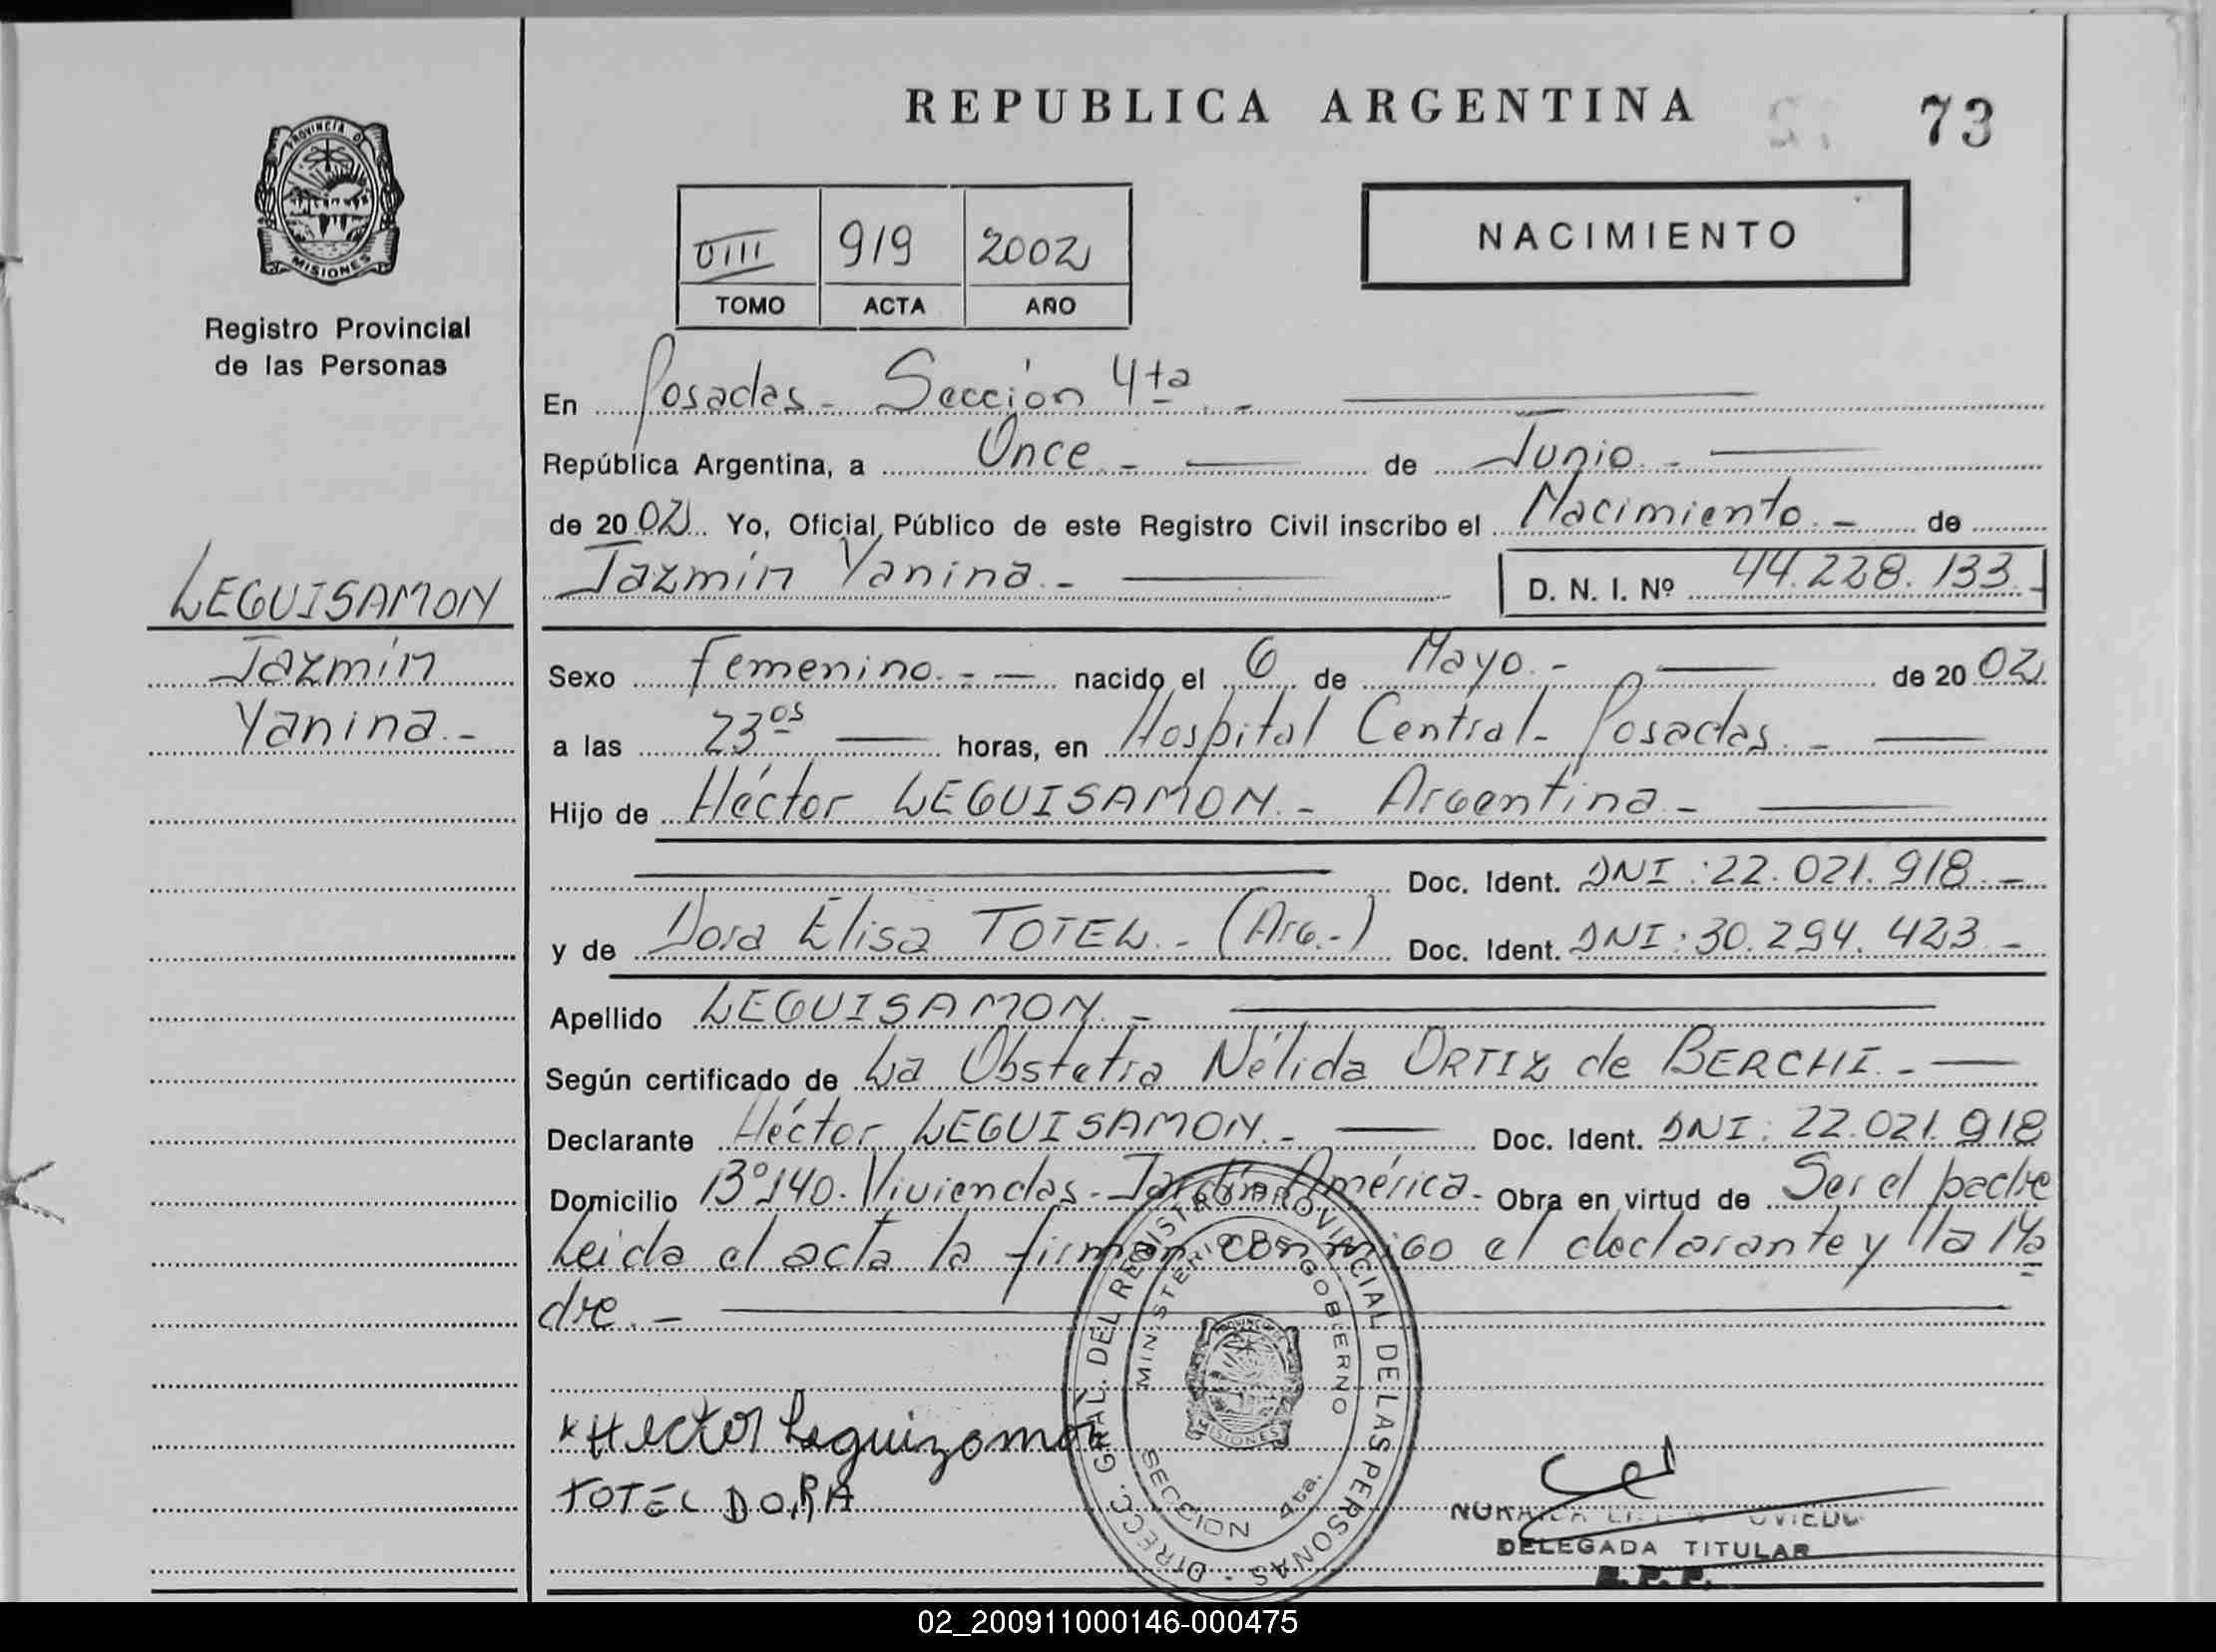 REPUBLICA ARGENTINA
73
PROVINCIA DE
MISIONES
Registro Provincial
de las Personas
VIII 919 2002
TOMO ACTA AÑO
NACIMIENTO
En Posadas - Sección 4ta. -
República Argentina, a Once. - de Junio. -
de 2002 Yo, Oficial Público de este Registro Civil inscribo el Nacimiento. - de
Jazmín Yanina. - D. N. I. Nº 44.228.133. -
LEGUISAMON
Jazmín
Yanina. -
Sexo Femenino. - nacido el 6 de Mayo. - de 2002
a las 23os horas, en Hospital Central - Posadas. -
Hijo de Héctor LEGUISAMON. - Argentina -
Doc. Ident. DNI: 22.021.918. -
y de Dora Elisa TOTEL. - (Arg. -) Doc. Ident. DNI: 30.294.423. -
Apellido LEGUISAMON. -
Según certificado de La Obstetra Nélida ORTIZ de BERCHI. -
Declarante Héctor LEGUISAMON. - Doc. Ident. DNI: 22.021.918
Domicilio Bº 140. Viviendas - Jardín América. - Obra en virtud de Ser el padre
Leida el acta la firman conmigo el declarante y la Ma
dre. -
DIRECC. GRAL. DEL REGISTRO PROVINCIAL DE LAS PERSONAS -
MINISTERIO DE GOBIERNO
SECCION 4ta.
PROVINCIA DE
MISIONES
x Hector Leguizamon
TOTEL DORA
OVIEDO
DELEGADA TITULAR
R. P. P.
02_200911000146-000475